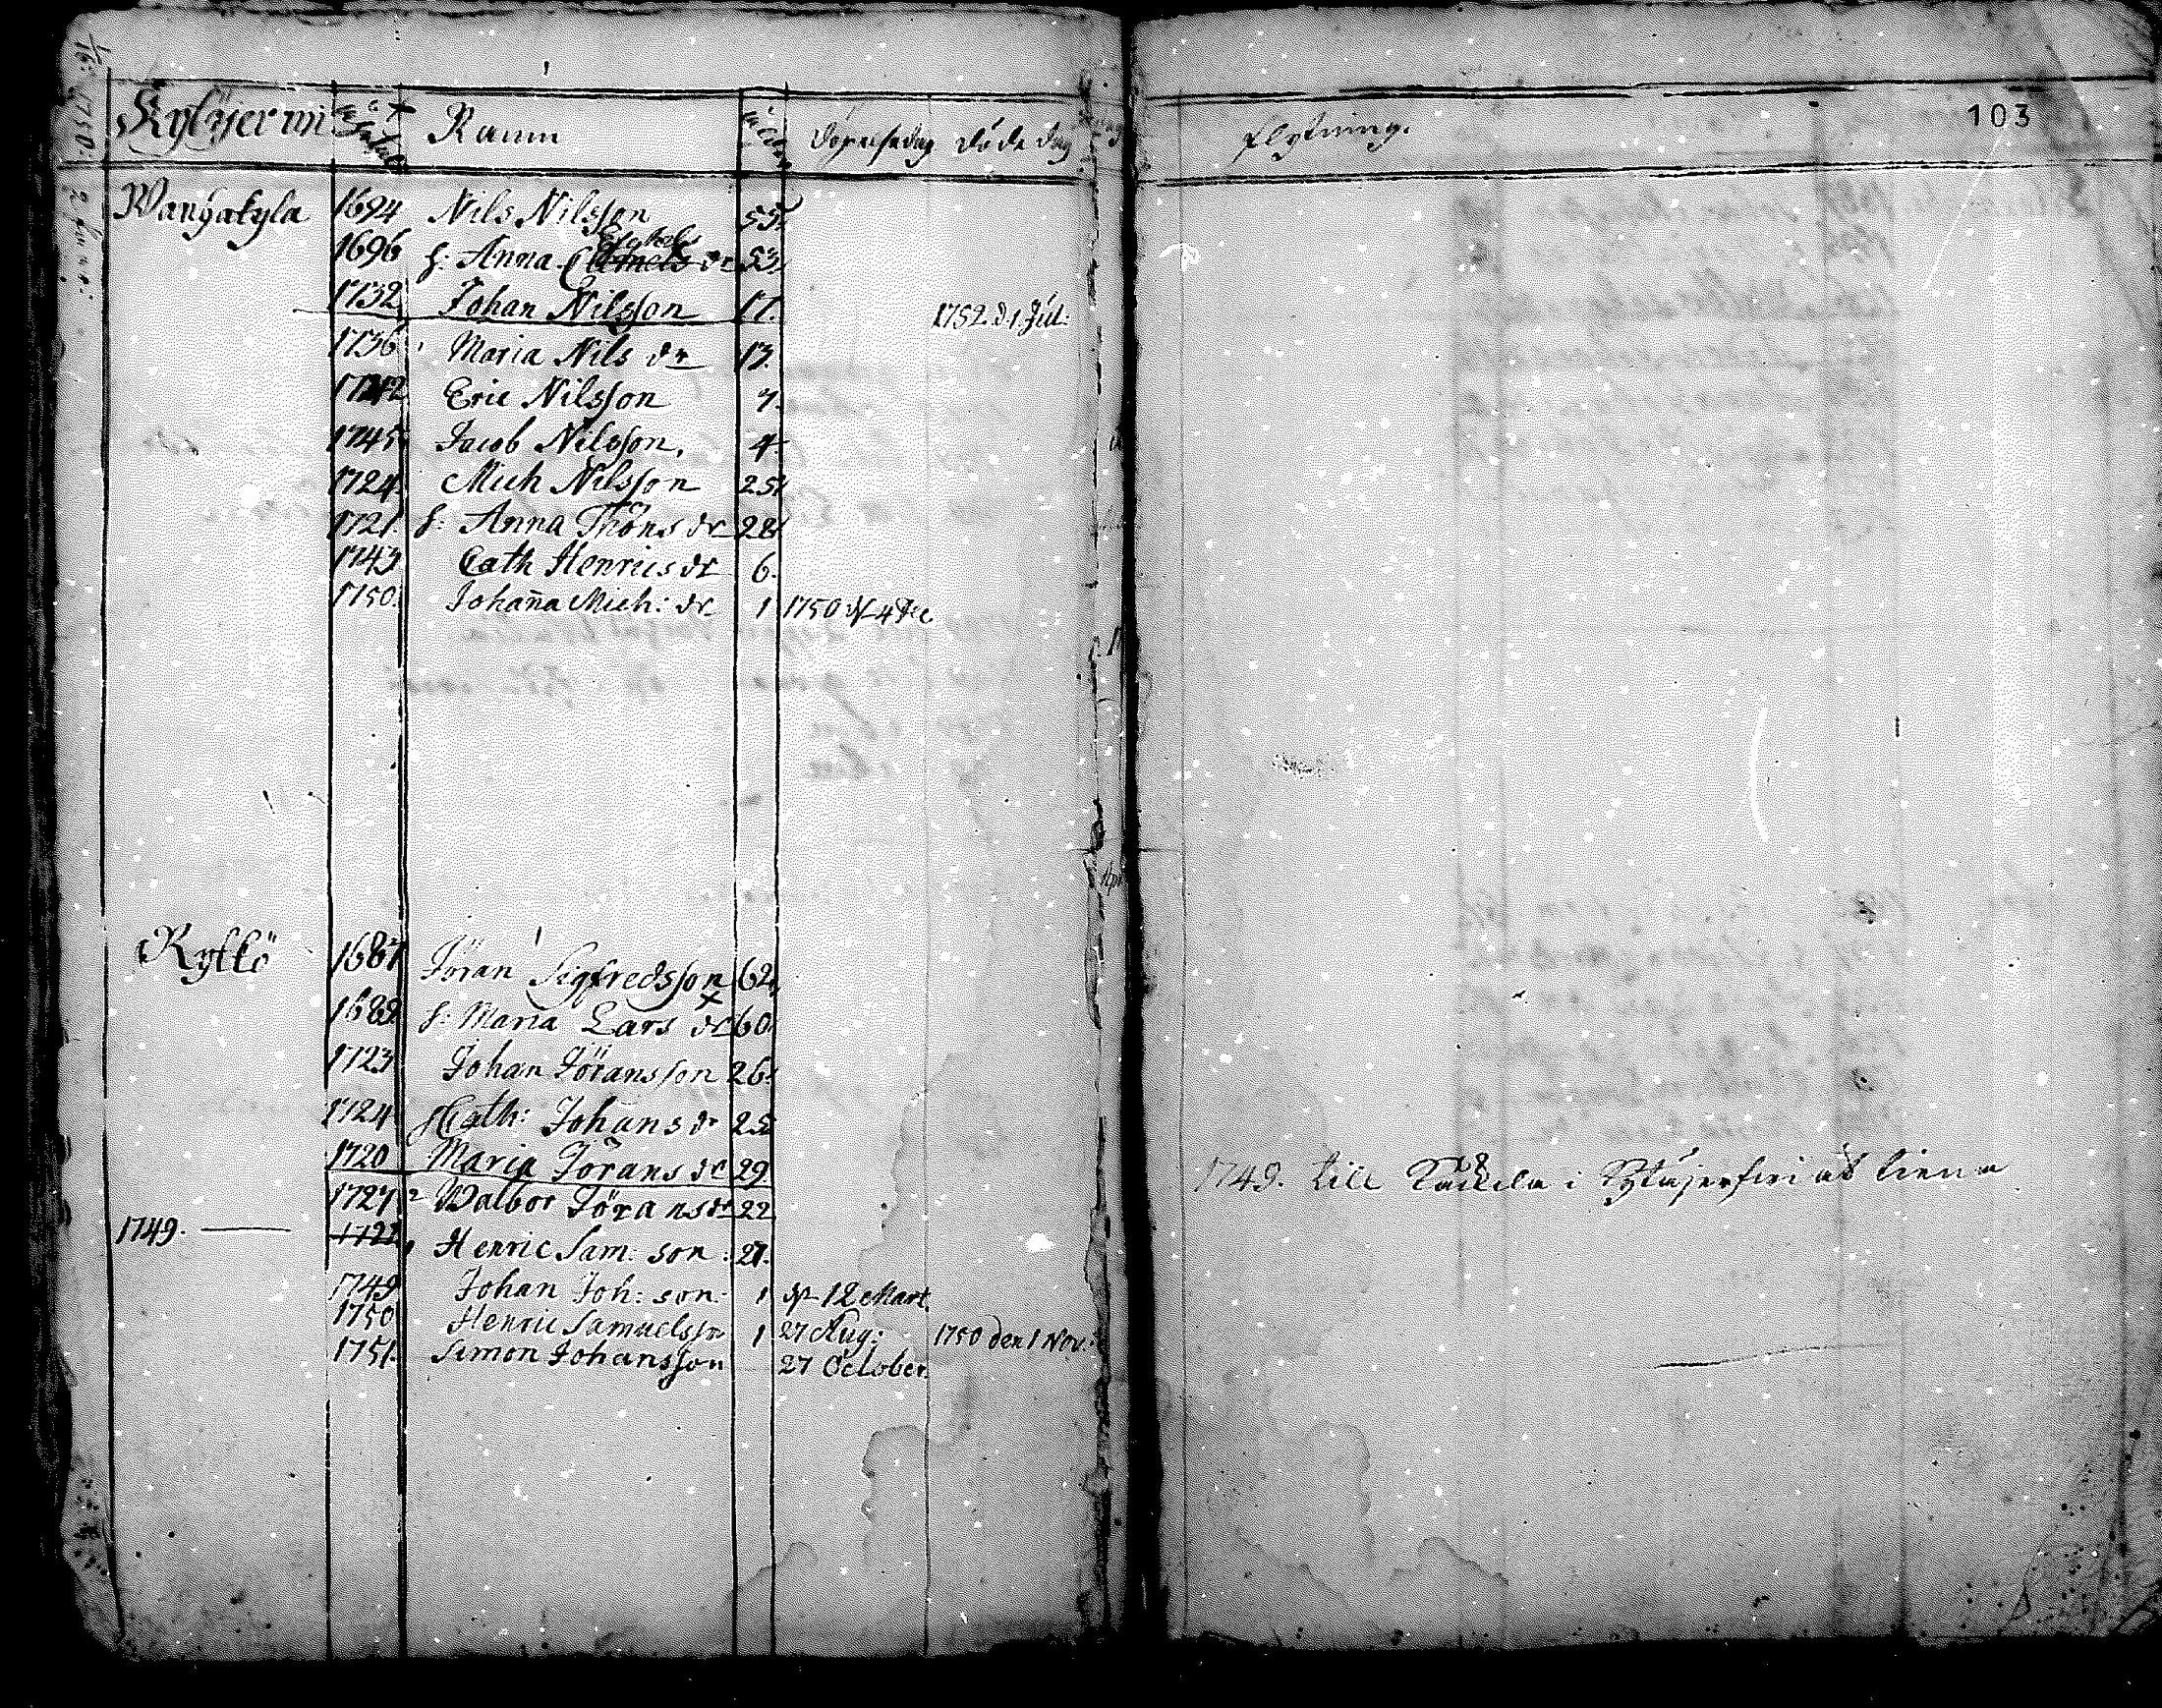 Namn döpelsedag döde dag flyttning. 103
Wanhakyla 1694 Nils Nilsson 55
1696 h: Anna dr 53
1732 Johan Nilsson 17. 1752. d. 1. Jul:
1736 Maria Nils dr 13.
1742 Eric Nilsson 7.
1745 Jacob Nilsson, 4.
1724 Mich Nilsson 25
1721 h: Anna Thöns dr 28
1743 Cath Henrics dr 6.
1750. Johaña Mich: dr 1 1750 d. 4 Dec
Kykkö 1687 Jöran Sigfredsson 62
1689 h: Maria Lars dr 60
1723 Johan Jöransson 26
1724 h Cath: Johans dr 25
1720 Maria Jörans dr 29 1749. till i at tiena
1727 Walbor Jörans dr 22
1749. 1722 Henric Sam: son: 27.
1749 Johan Joh: son: 1 d. 12 Mart.
1750 Henric Samuelsson 1 27 Aug: 1750 den 1 Nov:
1751. Simon Johansson 27 October.